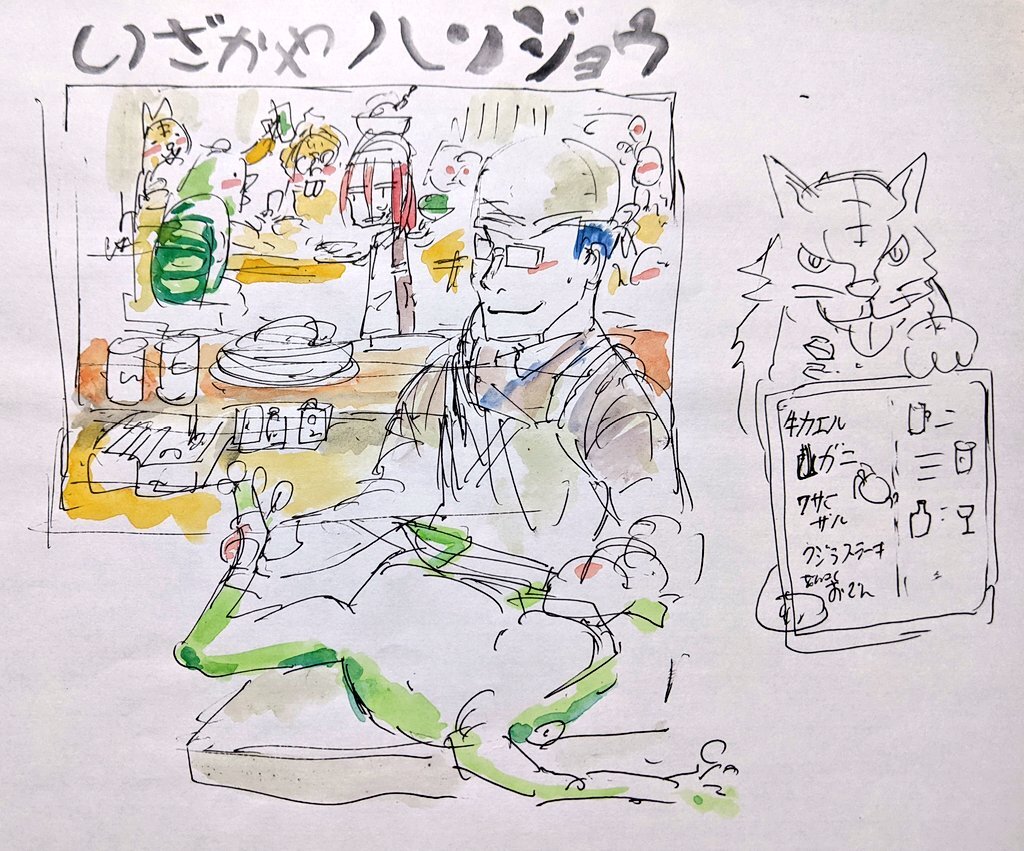 いざかや ハンジョウ
牛カエル
ガニ
ワサビ
ザル
クジラステーキ
おでん